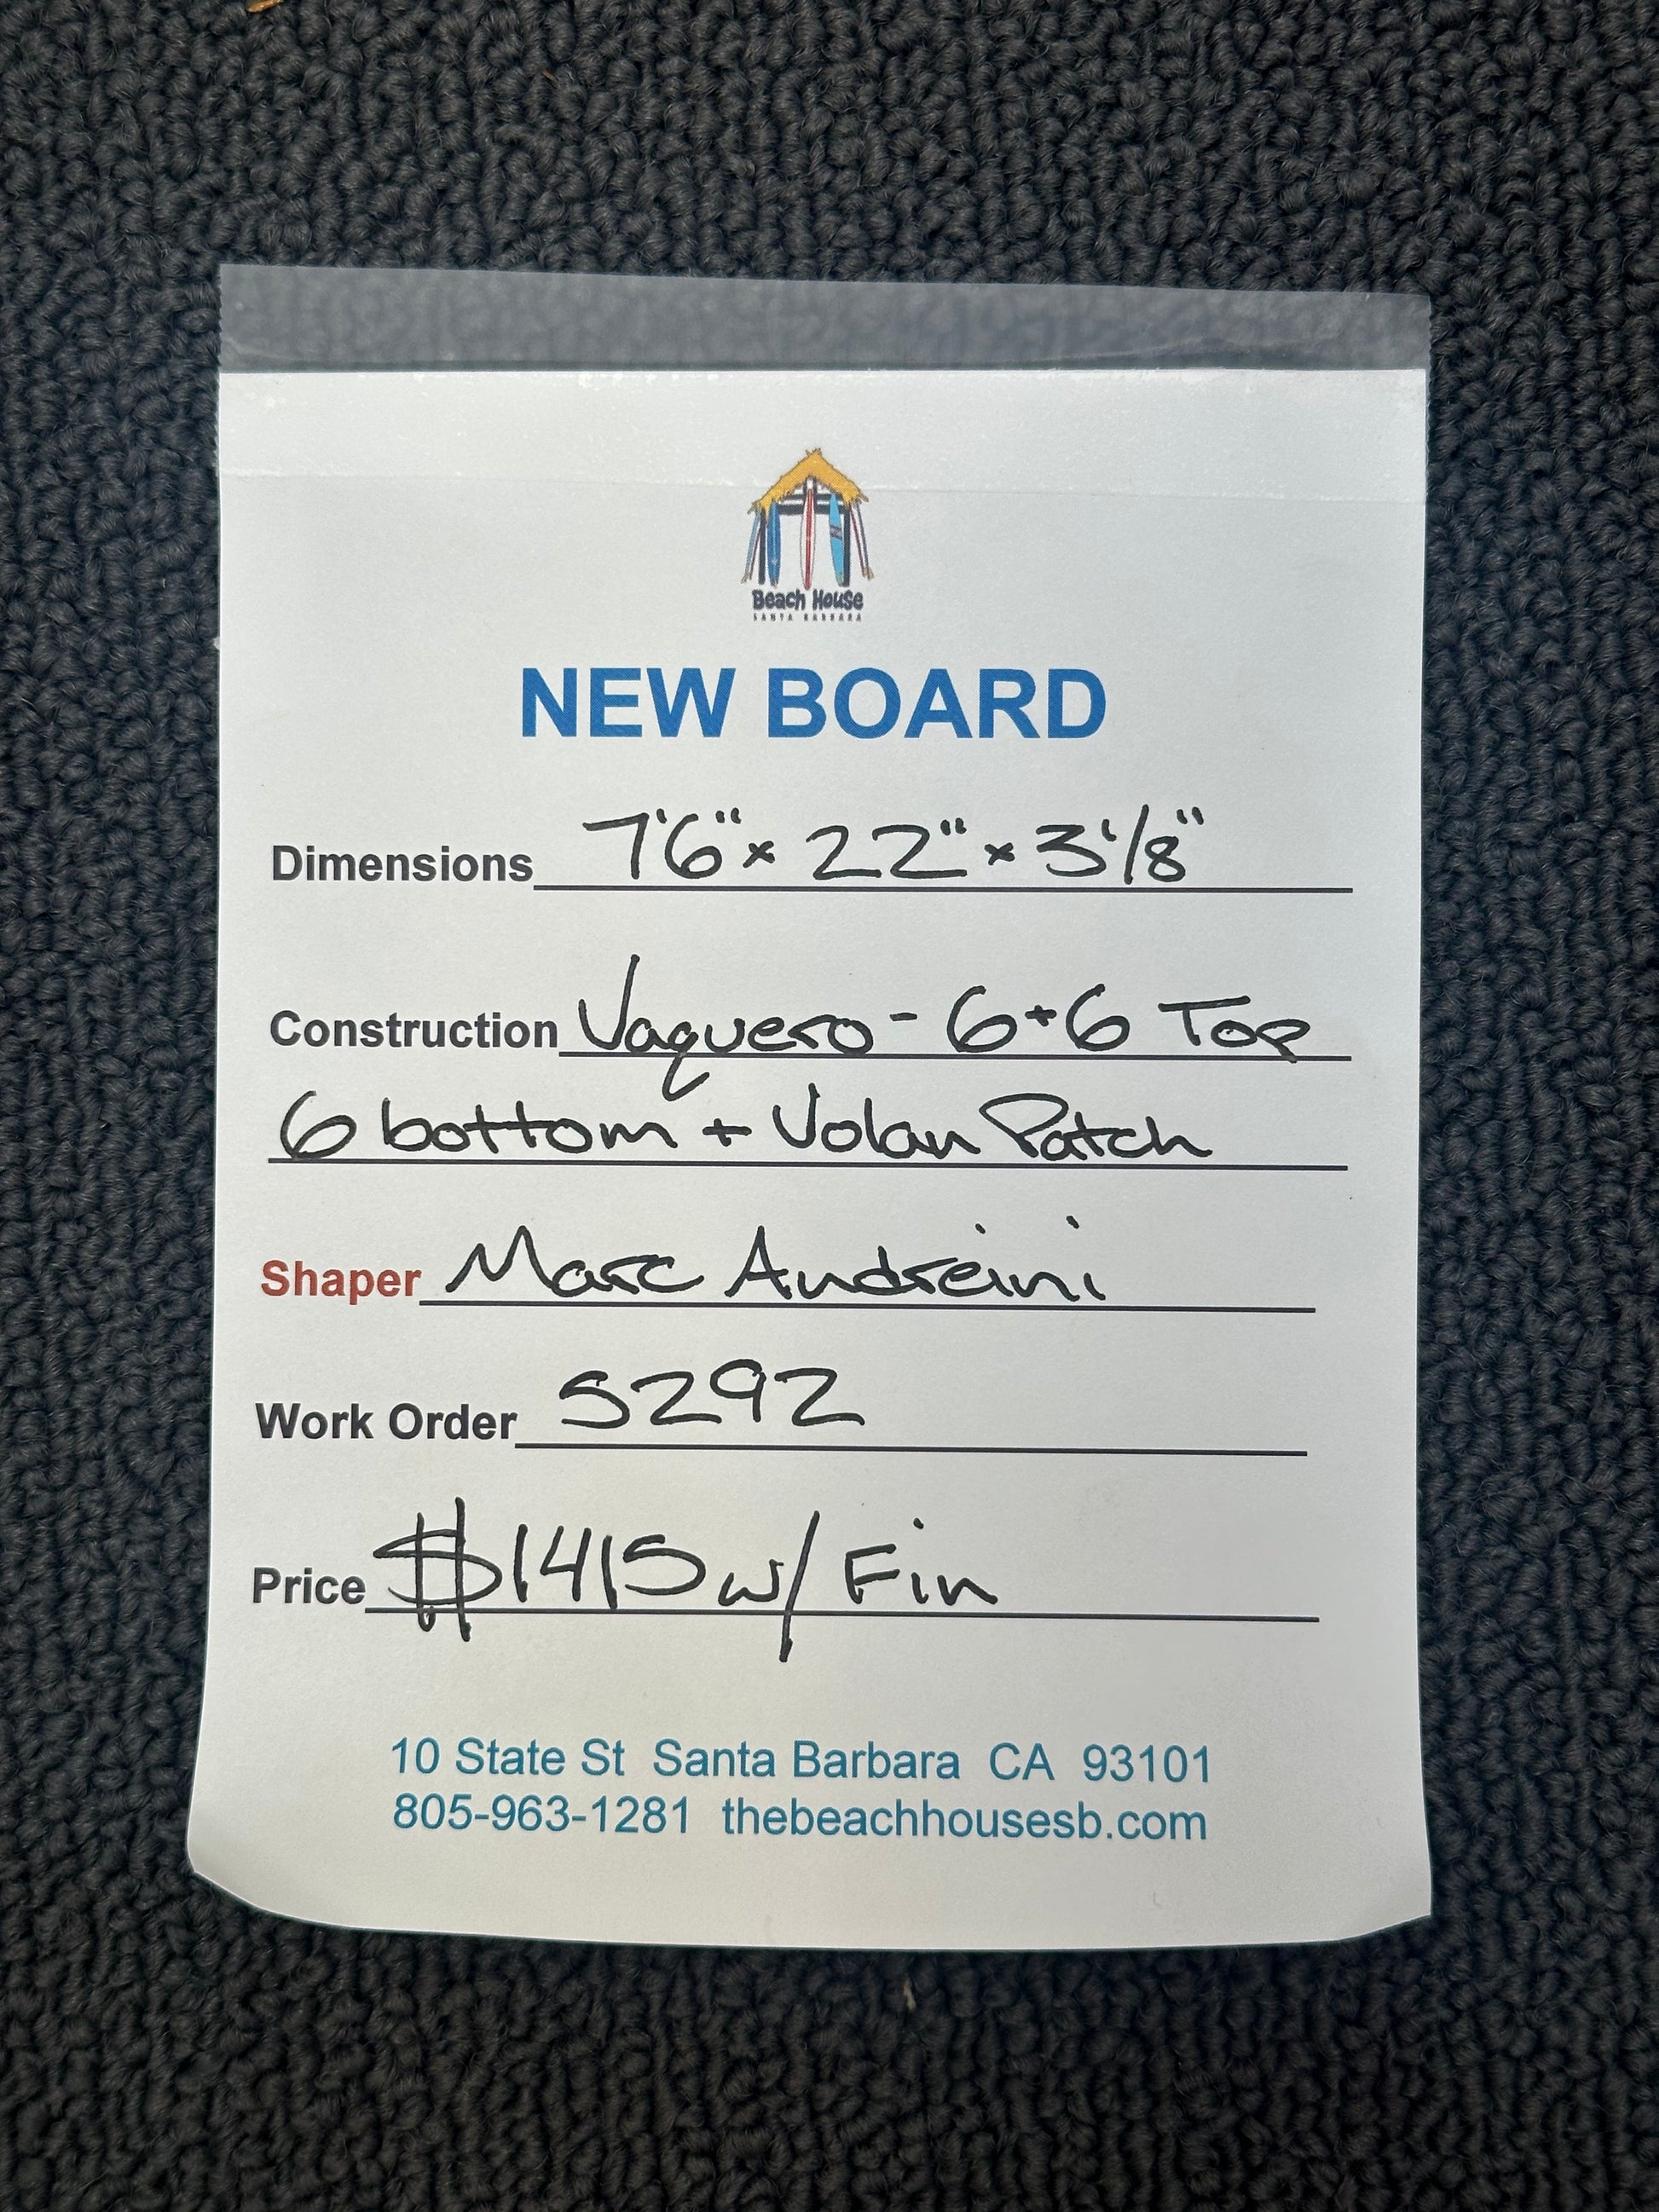 Beach House
SANTA BARBARA
NEW BOARD
Dimensions 7'6" x 22" x 3 1/8"
Construction Vaquero - 6+6 Top
6 bottom + Volan Patch
Shaper Marc Andreini
Work Order 5292
Price $1415 w/ Fin
10 State St Santa Barbara CA 93101
805-963-1281 thebeachhousesb.com